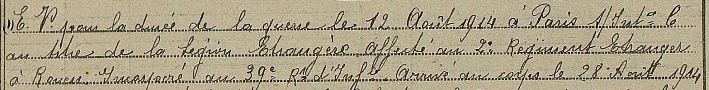 E. V. pour la durée de la guerre le 12 Août 1914 à Paris s/Intce C
au titre de la Légion Etrangère Affecté au 2e Régiment Etranger
à Rouen Incorporé au 39e Rt d'Infie Arrivé au corps le 28 Août 1914